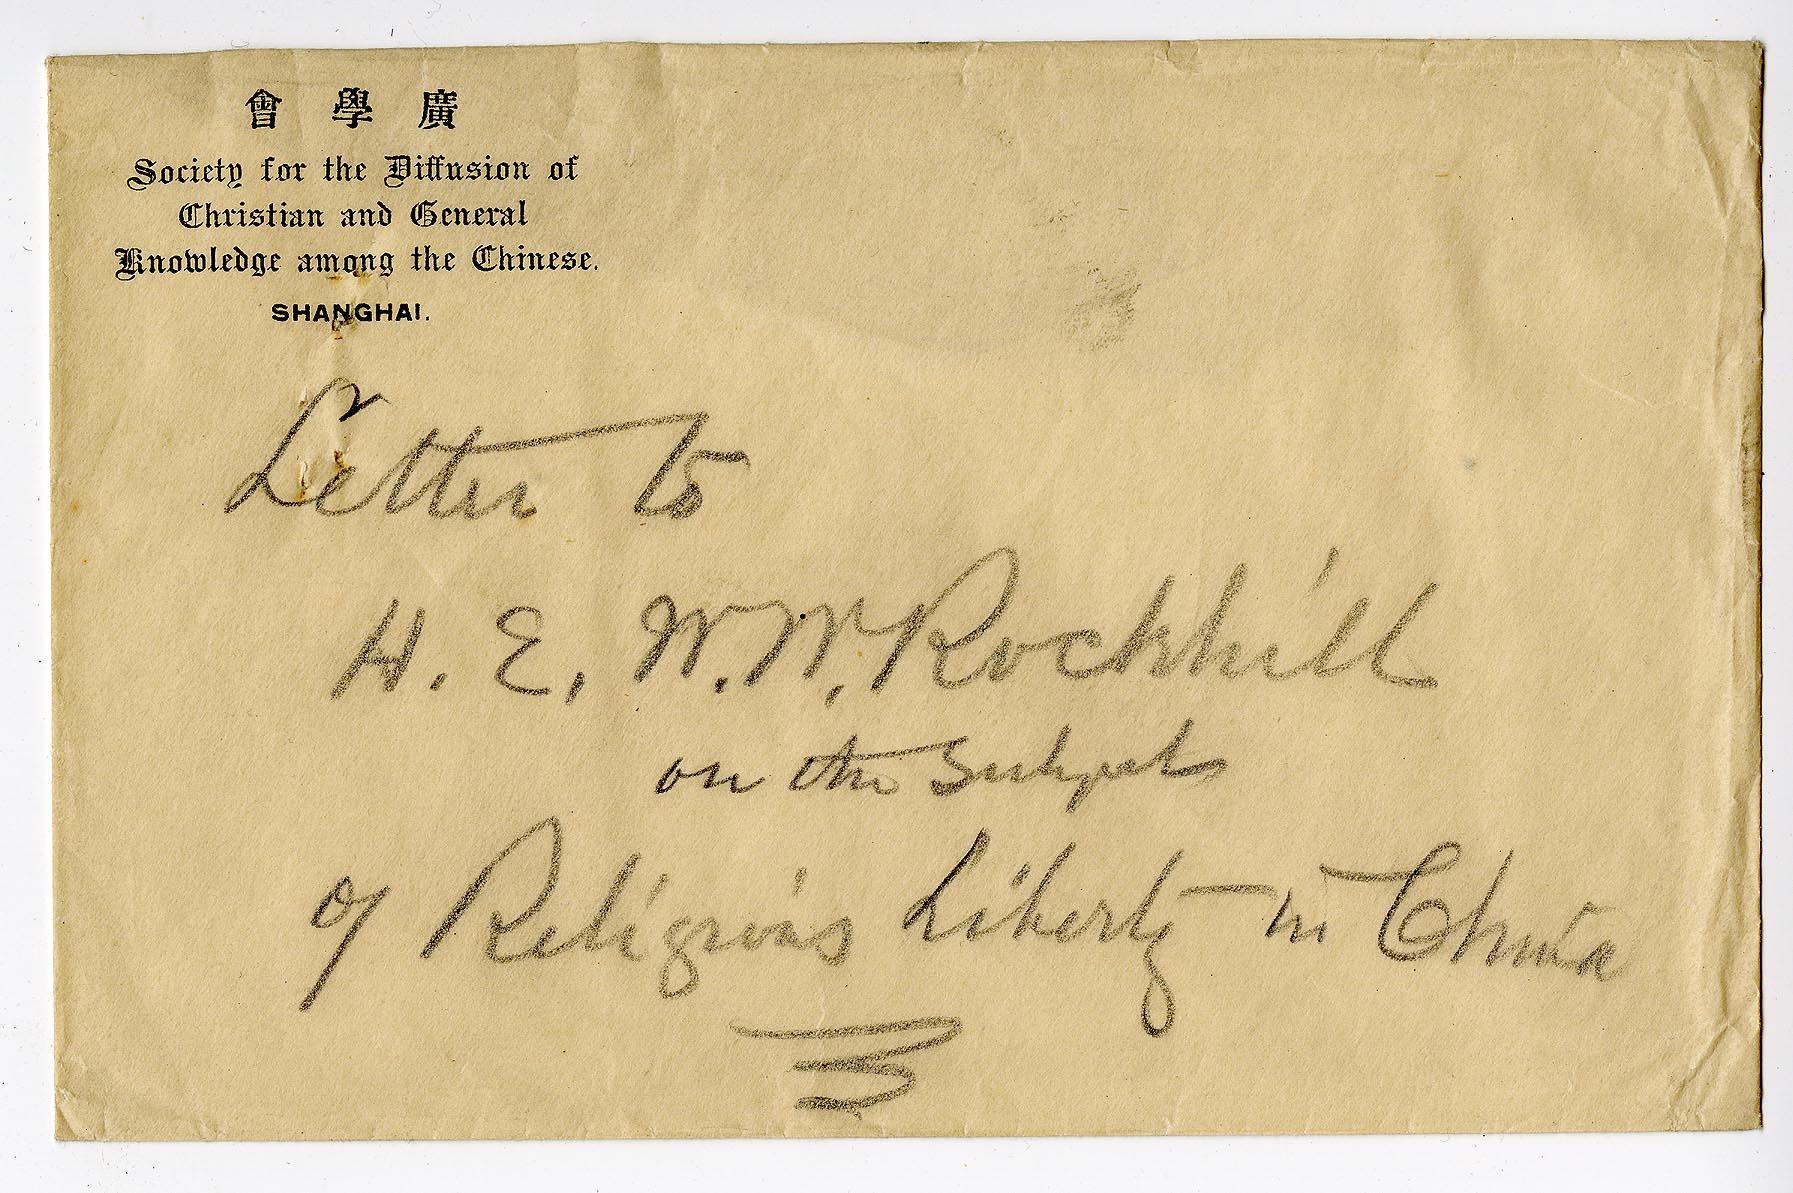 會 學 廣
Society for the Diffusion of
Christian and General
Knowledge among the Chinese.
SHANGHAI.
Letter to
H. E. W. W. Rockhill
on the Subject
of Religious Liberty in China